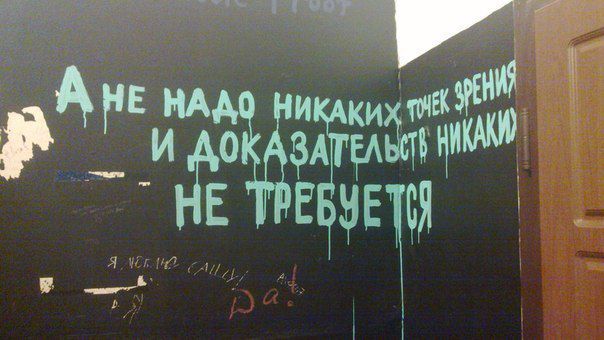 А НЕ НАДО НИКАКИХ ТОЧЕК ЗРЕНИЯ
И ДОКАЗАТЕЛЬСТВ НИКАКИХ
НЕ ТРЕБУЕТСЯ
Я ЛЮБЛЮ САШУ!
Да!